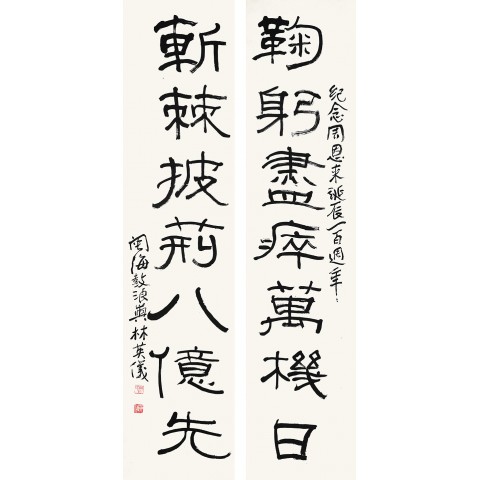 鞠躬盡瘁萬機日
紀念周恩來誕辰一百週年
斬棘披荊八億先
閩海鼓浪嶼林英儀